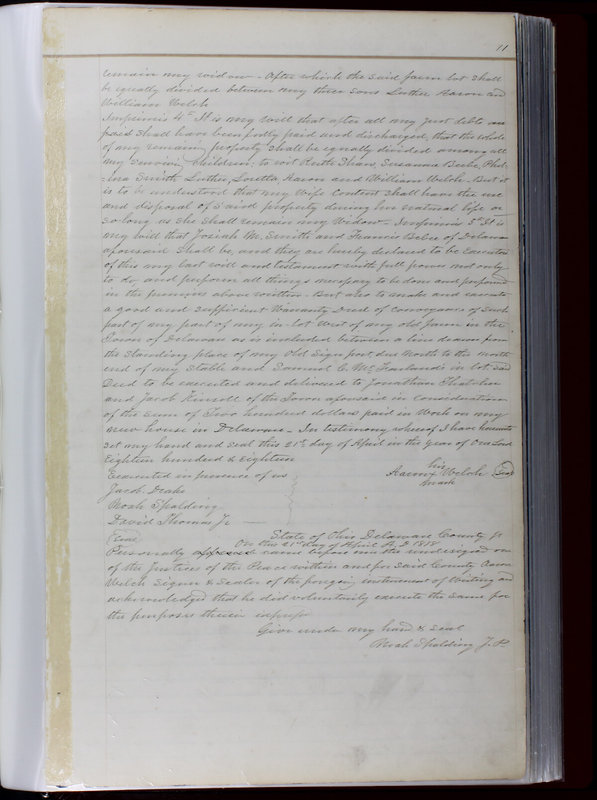 11
remain my widow - After which the said farm lot shall
be equally divided between my three sons Luther Aaron and
William Welch
Imprimis 4th It is my will that after all my just debts are
paid shall have been justly paid and discharged, that the whole
of my remaing property shall be equally divided among all
my children, to wit Ruth Susanna Beebe, Phil-
Smith Luther, Loretta Aaron and William Welch. But it
is to be understood that my wife Content shall have the use
and disposal of said property during her natural life or
so long as she shall remain my Widow - Imprimis 5th It is
my will that Josiah M. Smith and Francis Bebee of Delaware
aforesaid shall be, and they are hereby declared to be Executors
of this my last will and testament with full power not only
to do and perform all things necessary to be done and performed
in the premises above written - But also to make and execute
a good and sufficient Warranty Deed of conveyance of such
part of any part of my in-lot West of my old farm in the
Town of Delaware as is included between a line drawn from
the Standing place of my Old Sign post due North to the north
end of my Stable and Samuel C. McFarland's in lot said
Deed to be executed and delivered to Jonathan
and Jacob of the Town aforesaid in consideration
of the sum of Two hundred dollars paid in Work on my
new house in Delaware - In testimony whereof I have hereunto
set my hand and seal this 21st day of April in the year of Our Lord
Eighteen hundred & Eighteen
Executed in presence of us
his
Aaron x Welch (Seal)
mark
Jacob Drake
Noah Spalding
David Thomas Jr
(Seal) State of Ohio Delaware County ss
On this 21st day of April A.D 1818
Personally appeared came before me the undersigned one
of the Justices of the Peace within and for said County Aaron
Welch Signer & Sealer of the foregoing instrument of Writing and
acknowledged that he did voluntarily execute the same for
the purposes therein
Give under my hand & seal
Noah Spalding J.P.